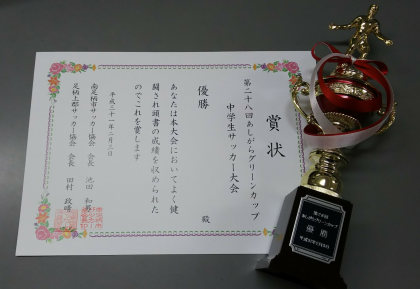 賞状
第二十八回あしがらグリーンカップ
中学生サッカー大会
優勝
殿
あなたは本大会においてよく健
闘され頭書の成績を収められた
のでこれを賞します
平成三十一年二月三日
南足柄市サッカー協会 会長 池田
足柄上郡サッカー協会 会長 田村
優勝